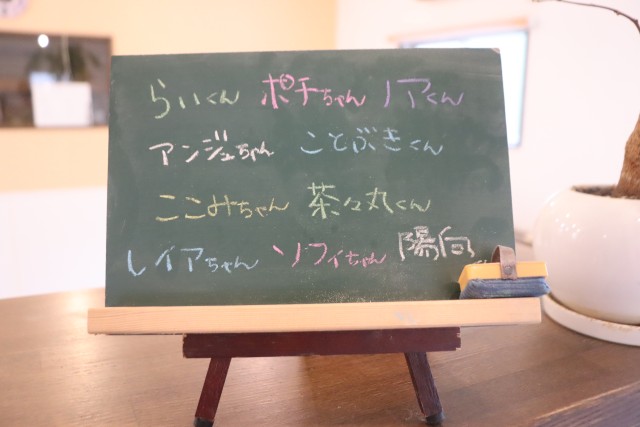 らいくん ポチちゃん ノアくん
アンジュちゃん ことぶきくん
ここみちゃん 茶々丸くん
レイアちゃん ソフィちゃん 陽向